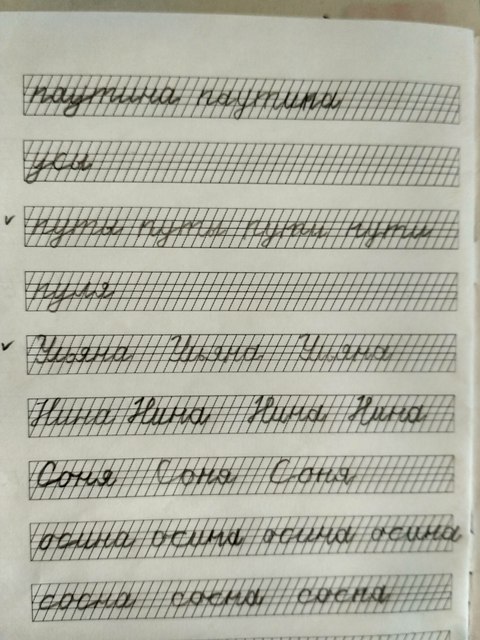 паутина паутина
уси
пути пути пути пути
пуля
Ульяна Ульяна Ульяна
Нина Нина Нина Нина
Соня Соня Соня
осина осина осина осина
сосна сосна сосна